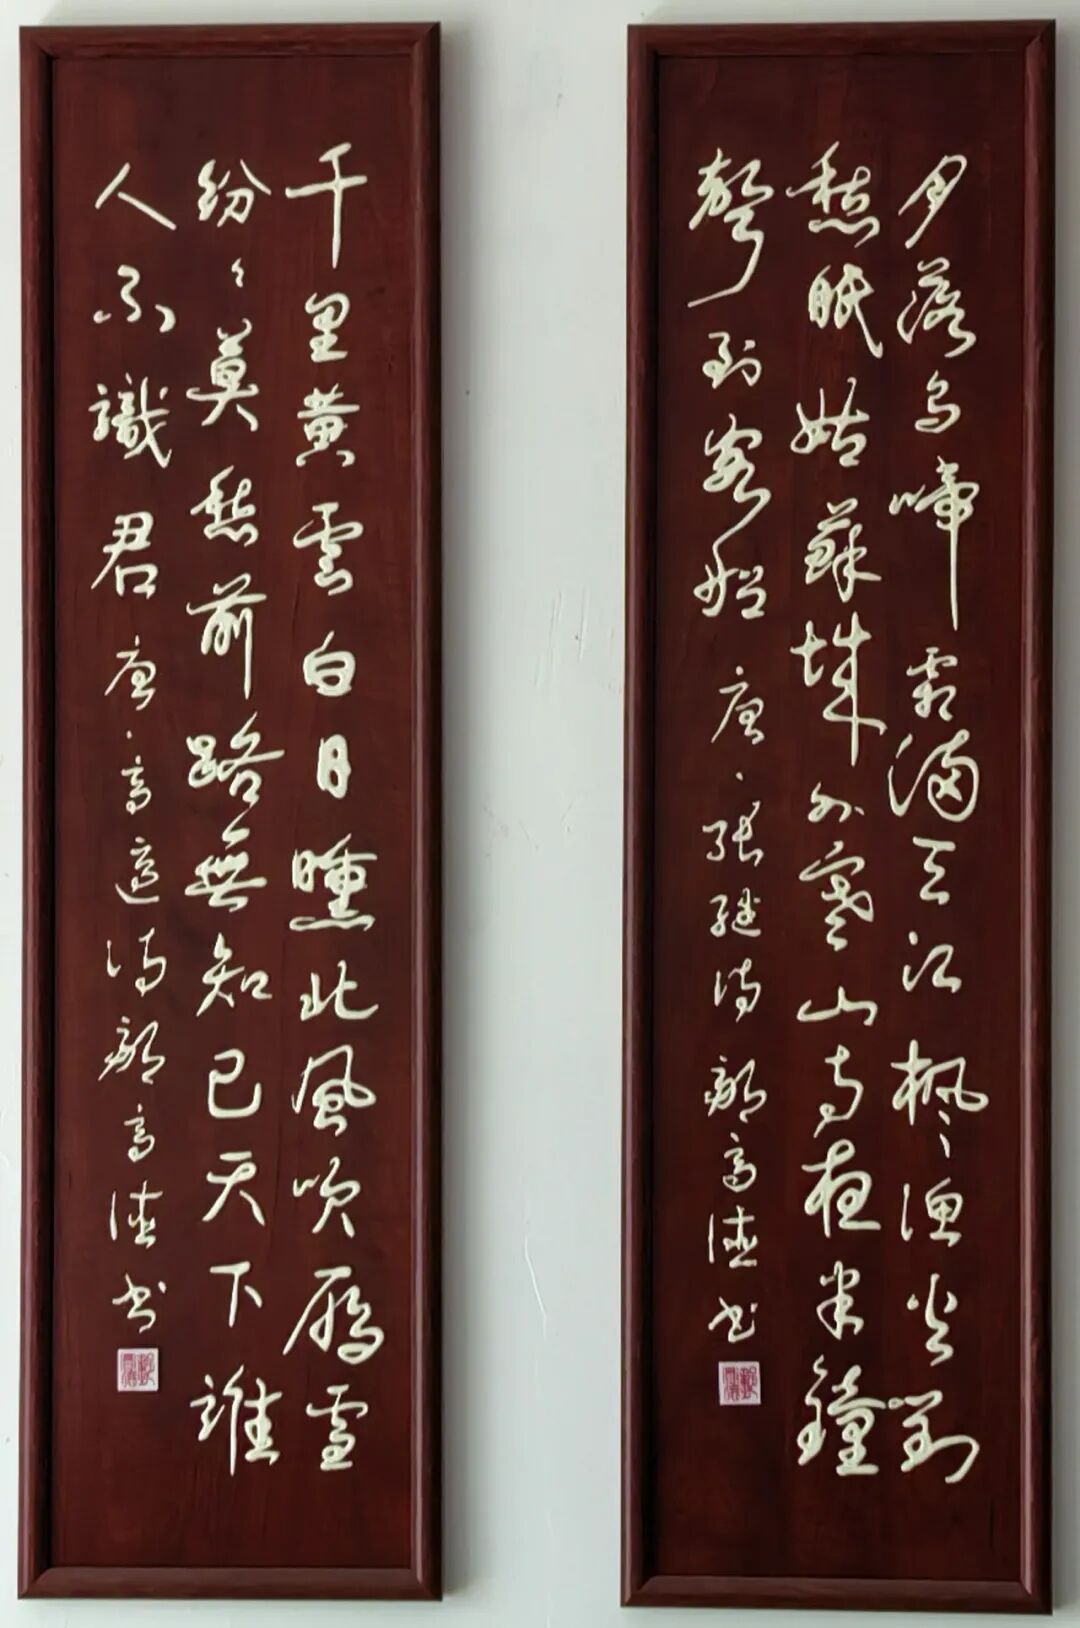 月落烏啼霜滿天江楓漁火對
愁眠姑蘇城外寒山寺夜半鐘
聲到客船 唐·張继詩 高德書
千里黃雲白日曛北風吹雁雪
紛々莫愁前路無知己天下誰
人不識君 唐·高適詩 高德書